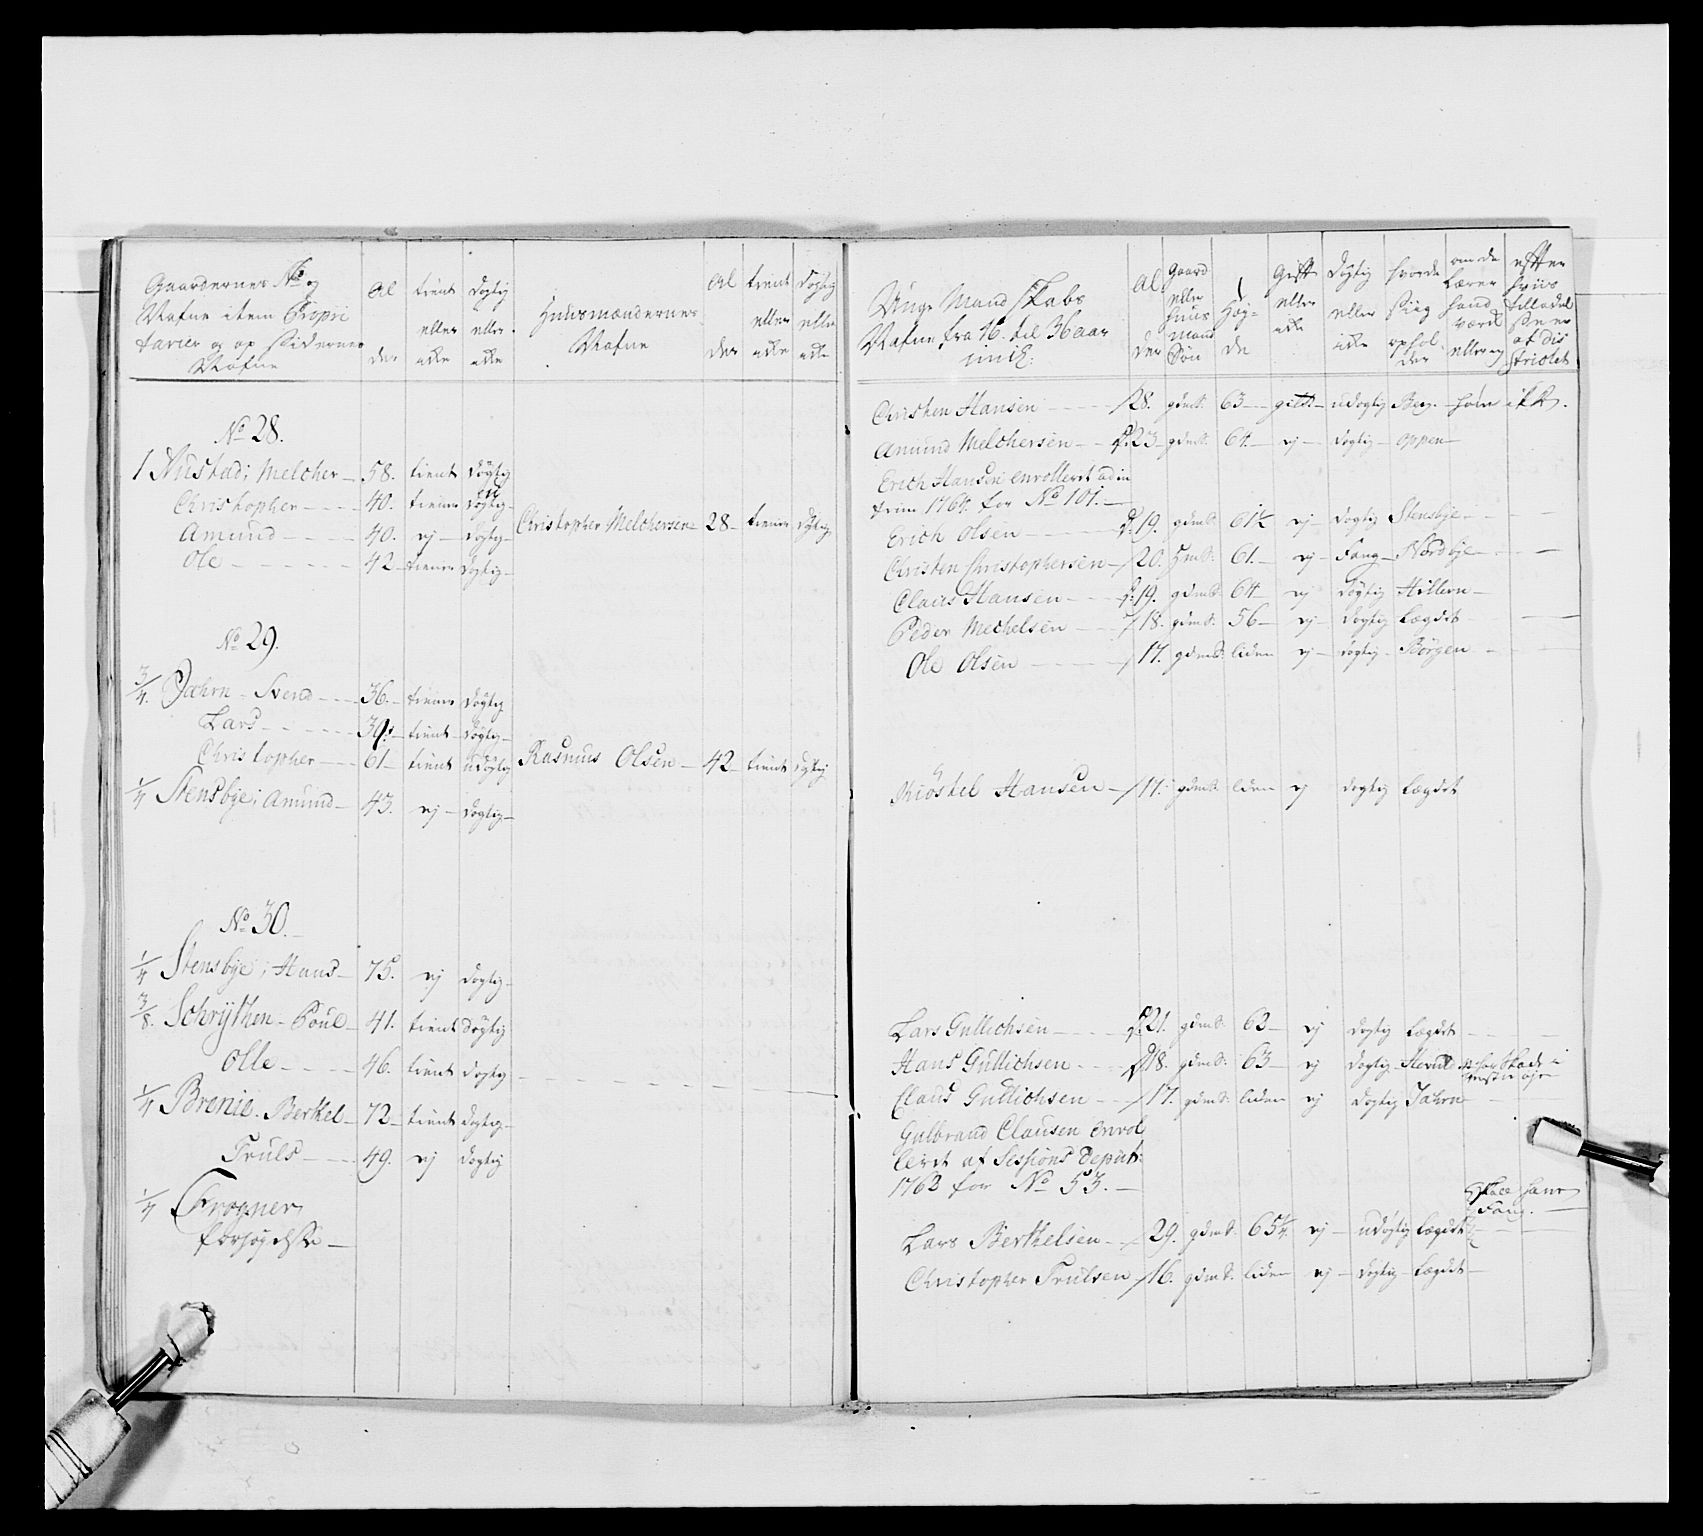 Gaardernes No og Nafne item Propri tairer og op sidernes Nafne | Al der | tient eller icke | dygtig eller icke | Huusmændernes Nafne | Al der | tient eller icke | dygtig eller icke
No 28.
1 Nustad; Melcher — 58. tient døgtig
Christopher — 40. tiener døgtig — Christopher Melchersen — 28 — tiener dygtig
Amund — 40. ej — døgtig —
Ole — 42 — tiener døgtig —
No 29.
3/4. Jæhrn — Svend — 36. — tiener døgtig
Lars — 39. — tient — døgtig —
Christopher — 61 — tient udøgtig Rasmus Olsen — 42 — tient dygtig
1/4 Stensbye; Amund — 43. ej — døgtig —
No 30.
1/4 Stensbye; Hans — 75. ej døgtig —
3/8. Schrythen — Poul — 41. tient døgtig
Olle — 46. tient døgtig
1/4 Brenie. Berthel — 72 — tient døgtig —
Truls — 49. ej døgtig
1/4 Frogner
forsøgelse —
Unge Mandskabs Nafne fra 16 til 36 aar incl: | Al der | Gaard eller huus mands Søn | Høg= de | Gift eller icke | døgtig eller icke | hvorde sig ophol der | om de hand eller ej | efter hvis tilladelse er af districtet
Christen Hansen — 28. gdmS. 63 — gift — udøgtig Berg —
Amund Melchersen — 23 — gdmS. 64. — ej — døgtig — Oppen —
Erich Hansen enrollert ad in
trim 1764. for No 101. —
Erich Olsen — 19. gdmS. 61½ ej — døgtig Stensbye —
Christen Christophersen — 20. HmS. 61. — ej — Fang — Nordbye —
Claus Hansen — 19. gdmS. 64 — ej døgtig Hillern —
Peder Mechelsen — 18. gdmS. 56 — ej — døgtig Lægdet
Ole Olsen — 17. gdmS. liden ej — døgtig — Börgen —
Kiöstel Hansen — 17. gdmS. liden ej døgtig Lægdet
Lars Gullichsen — 21. gdmS. 63 — ej døgtig Lægdet —
Hans Gullichsen — 18. gdmS. 63 — ej døgtig — har skade i
Claus Gullichsen — 17. gdmS. liden ej døgtig Jahrn
Gulbrand Clausen enrol
leret af Sessions Deput:
1763 for No 53. —
Lars Berthelsen — 29. gdmS. 65¼. ej — udøgtig Lægdet
Christopher Trulsen — 16. gdmS. liden — ej — døgtig — Lægdet —